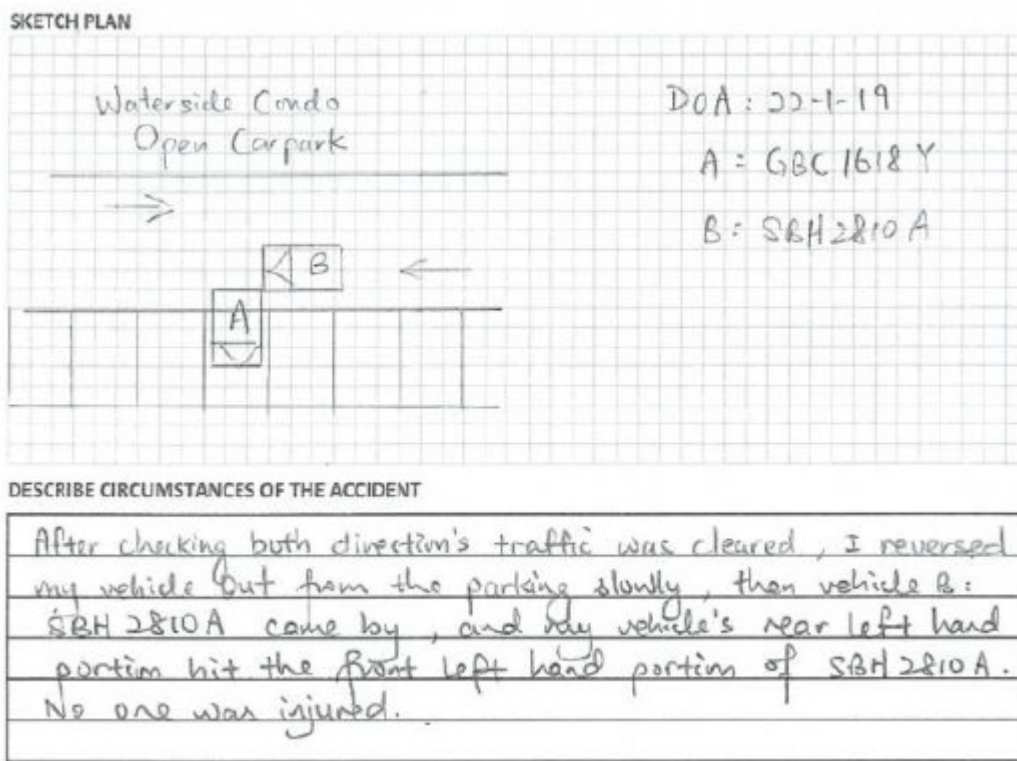 SKETCH PLAN
Waterside Condo
Open Carpark
DOA : 22-1-19
A = GBC 1618 Y
B = SBH 2810 A
B
A
DESCRIBE CIRCUMSTANCES OF THE ACCIDENT
After checking both direction's traffic was cleared, I reversed
my vehicle out from the parking slowly, then vehicle B:
SBH 2810A came by, and my vehicle's rear left hand
portion hit the front left hand portion of SBH 2810A.
No one was injured.